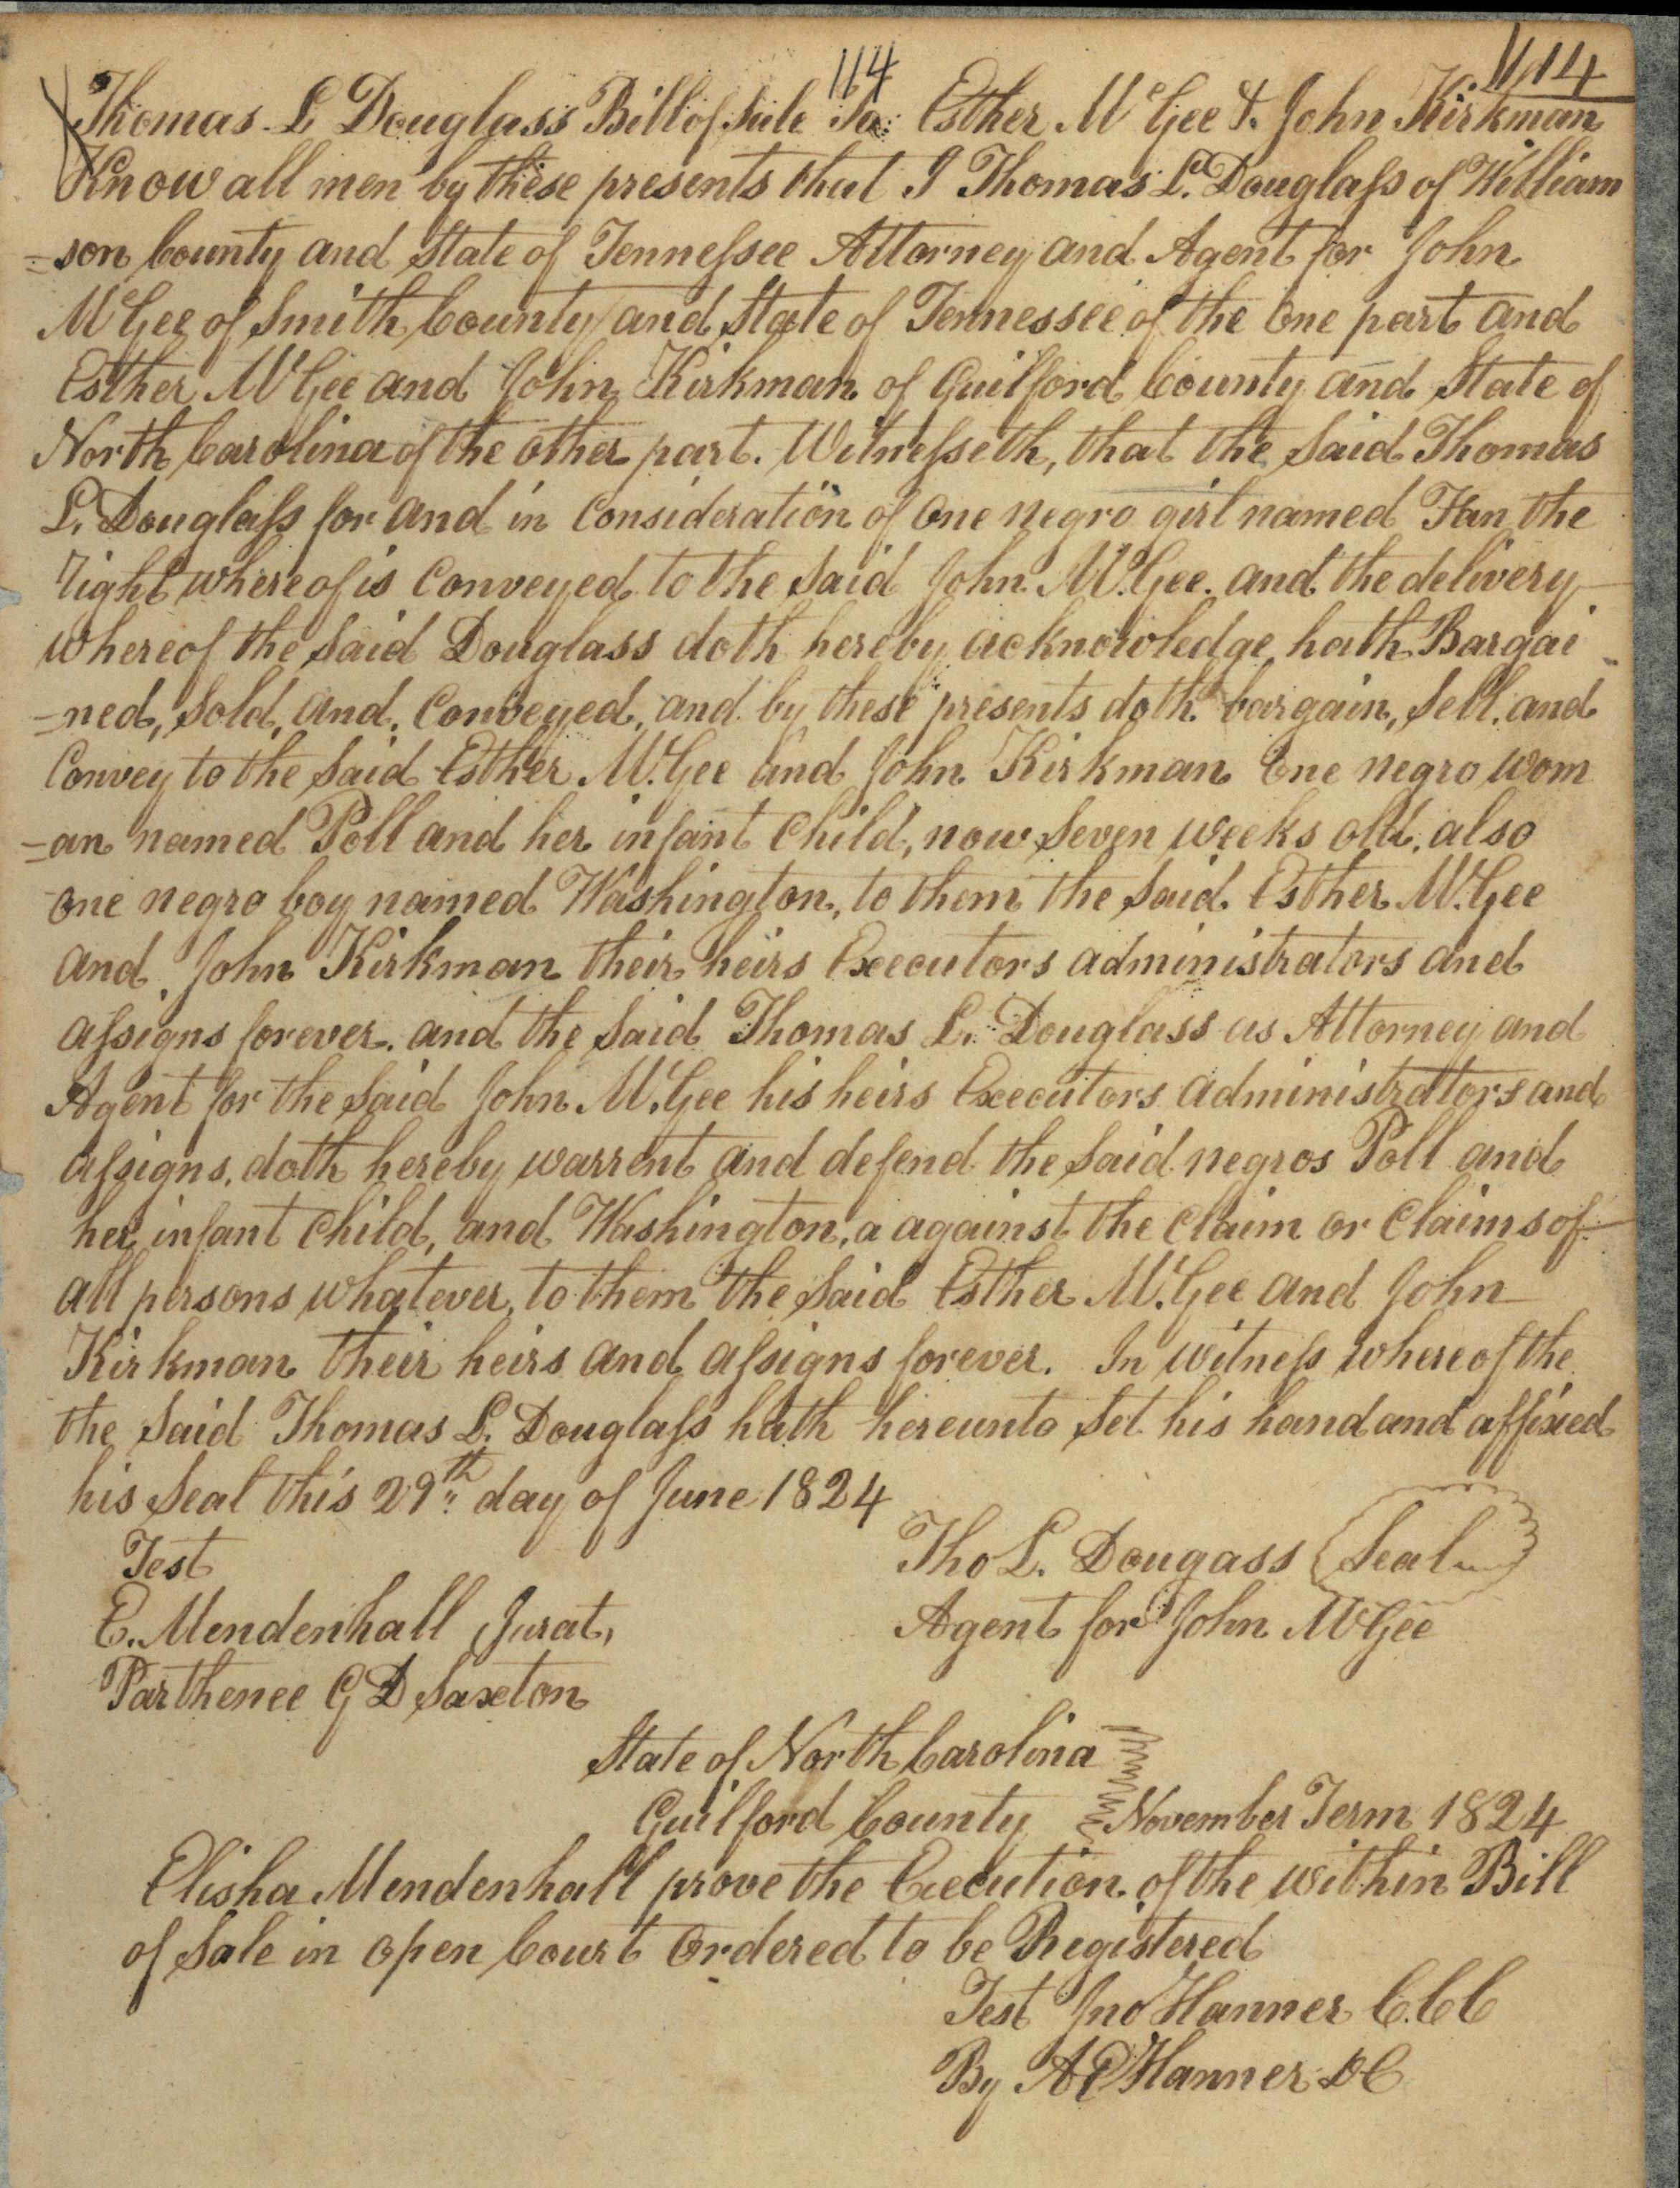 114
1114
Thomas L Douglass Bill of Sale To Esther McGee & John Kirkman
Know all men by these presents that I Thomas L. Douglaſs of William
=son County and State of Tenneſsee Attorney and Agent for John
McGee of Smith County and State of Tennessee of the one part and
Esther McGee and John Kirkman of Guilford County and State of
North Carolina of the other part. Witneſseth, that the Said Thomas
L. Douglaſs for and in Consideration of one negro girl named Han the
right whereof is Conveyed to the Said John McGee. and the delivery
whereof the Said Douglass doth hereby acknowledge hath Bargai
=ned, Sold, and, Conveyed, and by these presents doth bargain, Sell, and
Convey to the Said Esther McGee and John Kirkman One negro wom
=an named Poll and her infant Child, now Seven weeks old, also
one negro boy named Washington, to them the Said Esther McGee
and John Kirkman their heirs Executors administrators and
aſsigns forever. and the Said Thomas L. Douglass as Attorney and
Agent for the Said John McGee his heirs Executors administrators and
aſsigns, doth hereby warrent and defend the Said negros Poll and
her infant Child, and Washington, a against the Claim or Claims of
all persons whatever, to them the Said Esther McGee and John
Kirkman their heirs and aſsigns forever. In witneſs whereof the
the Said Thomas L. Douglaſs hath hereunto Set his hand and affixed
his Seal this 29th day of June 1824
Test
Tho L. Dougass Seal
E. Mendenhall Jurat,
Agent for John McGee
Parthenee G D Saxton
State of North Carolina
Guilford County November Term 1824
Elisha Mendenhall prove the Execution of the within Bill
of Sale in open Court Ordered to be Registered
Test Jno Hanner C.C.C
By A E Hanner DC